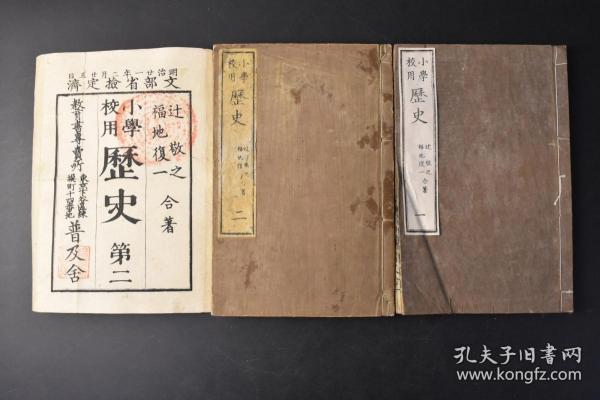 明治廿一年二月廿
文部省檢定濟
辻敬之
福地復一
合著
小學
校用
歷史 第二
教育書專賣所
普及舍
小學
校用
歷史
辻敬之
福地復一
合著
二
小學
校用
歷史
辻敬之
福地復一
合著
一
孔夫子旧书网
www.kongfz.com